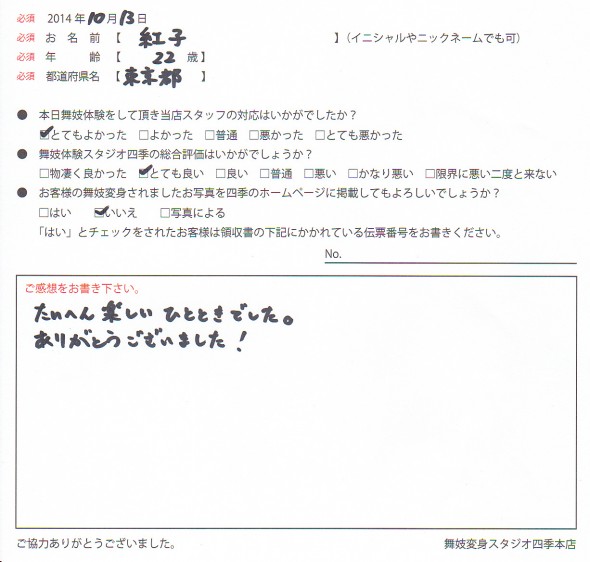 必須 2014年10月13日
必須 お名前【 紅子 】（イニシャルやニックネームでも可）
必須 年齢【 22 歳】
必須 都道府県名【東京都】
● 本日舞妓体験をして頂き当店スタッフの対応はいかがでしたか？
☑とてもよかった □よかった □普通 □悪かった □とても悪かった
● 舞妓体験スタジオ四季の総合評価はいかがでしょうか？
□物凄く良かった ☑とても良い □良い □普通 □悪い □かなり悪い □限界に悪い二度と来ない
● お客様の舞妓変身されましたお写真を四季のホームページに掲載してもよろしいでしょうか？
□はい ☑いいえ □写真による
「はい」とチェックをされたお客様は領収書の下記にかかれている伝票番号をお書きください。
No.
ご感想をお書き下さい。
たいへん楽しいひとときでした。
ありがとうございました！
ご協力ありがとうございました。 舞妓変身スタジオ四季本店